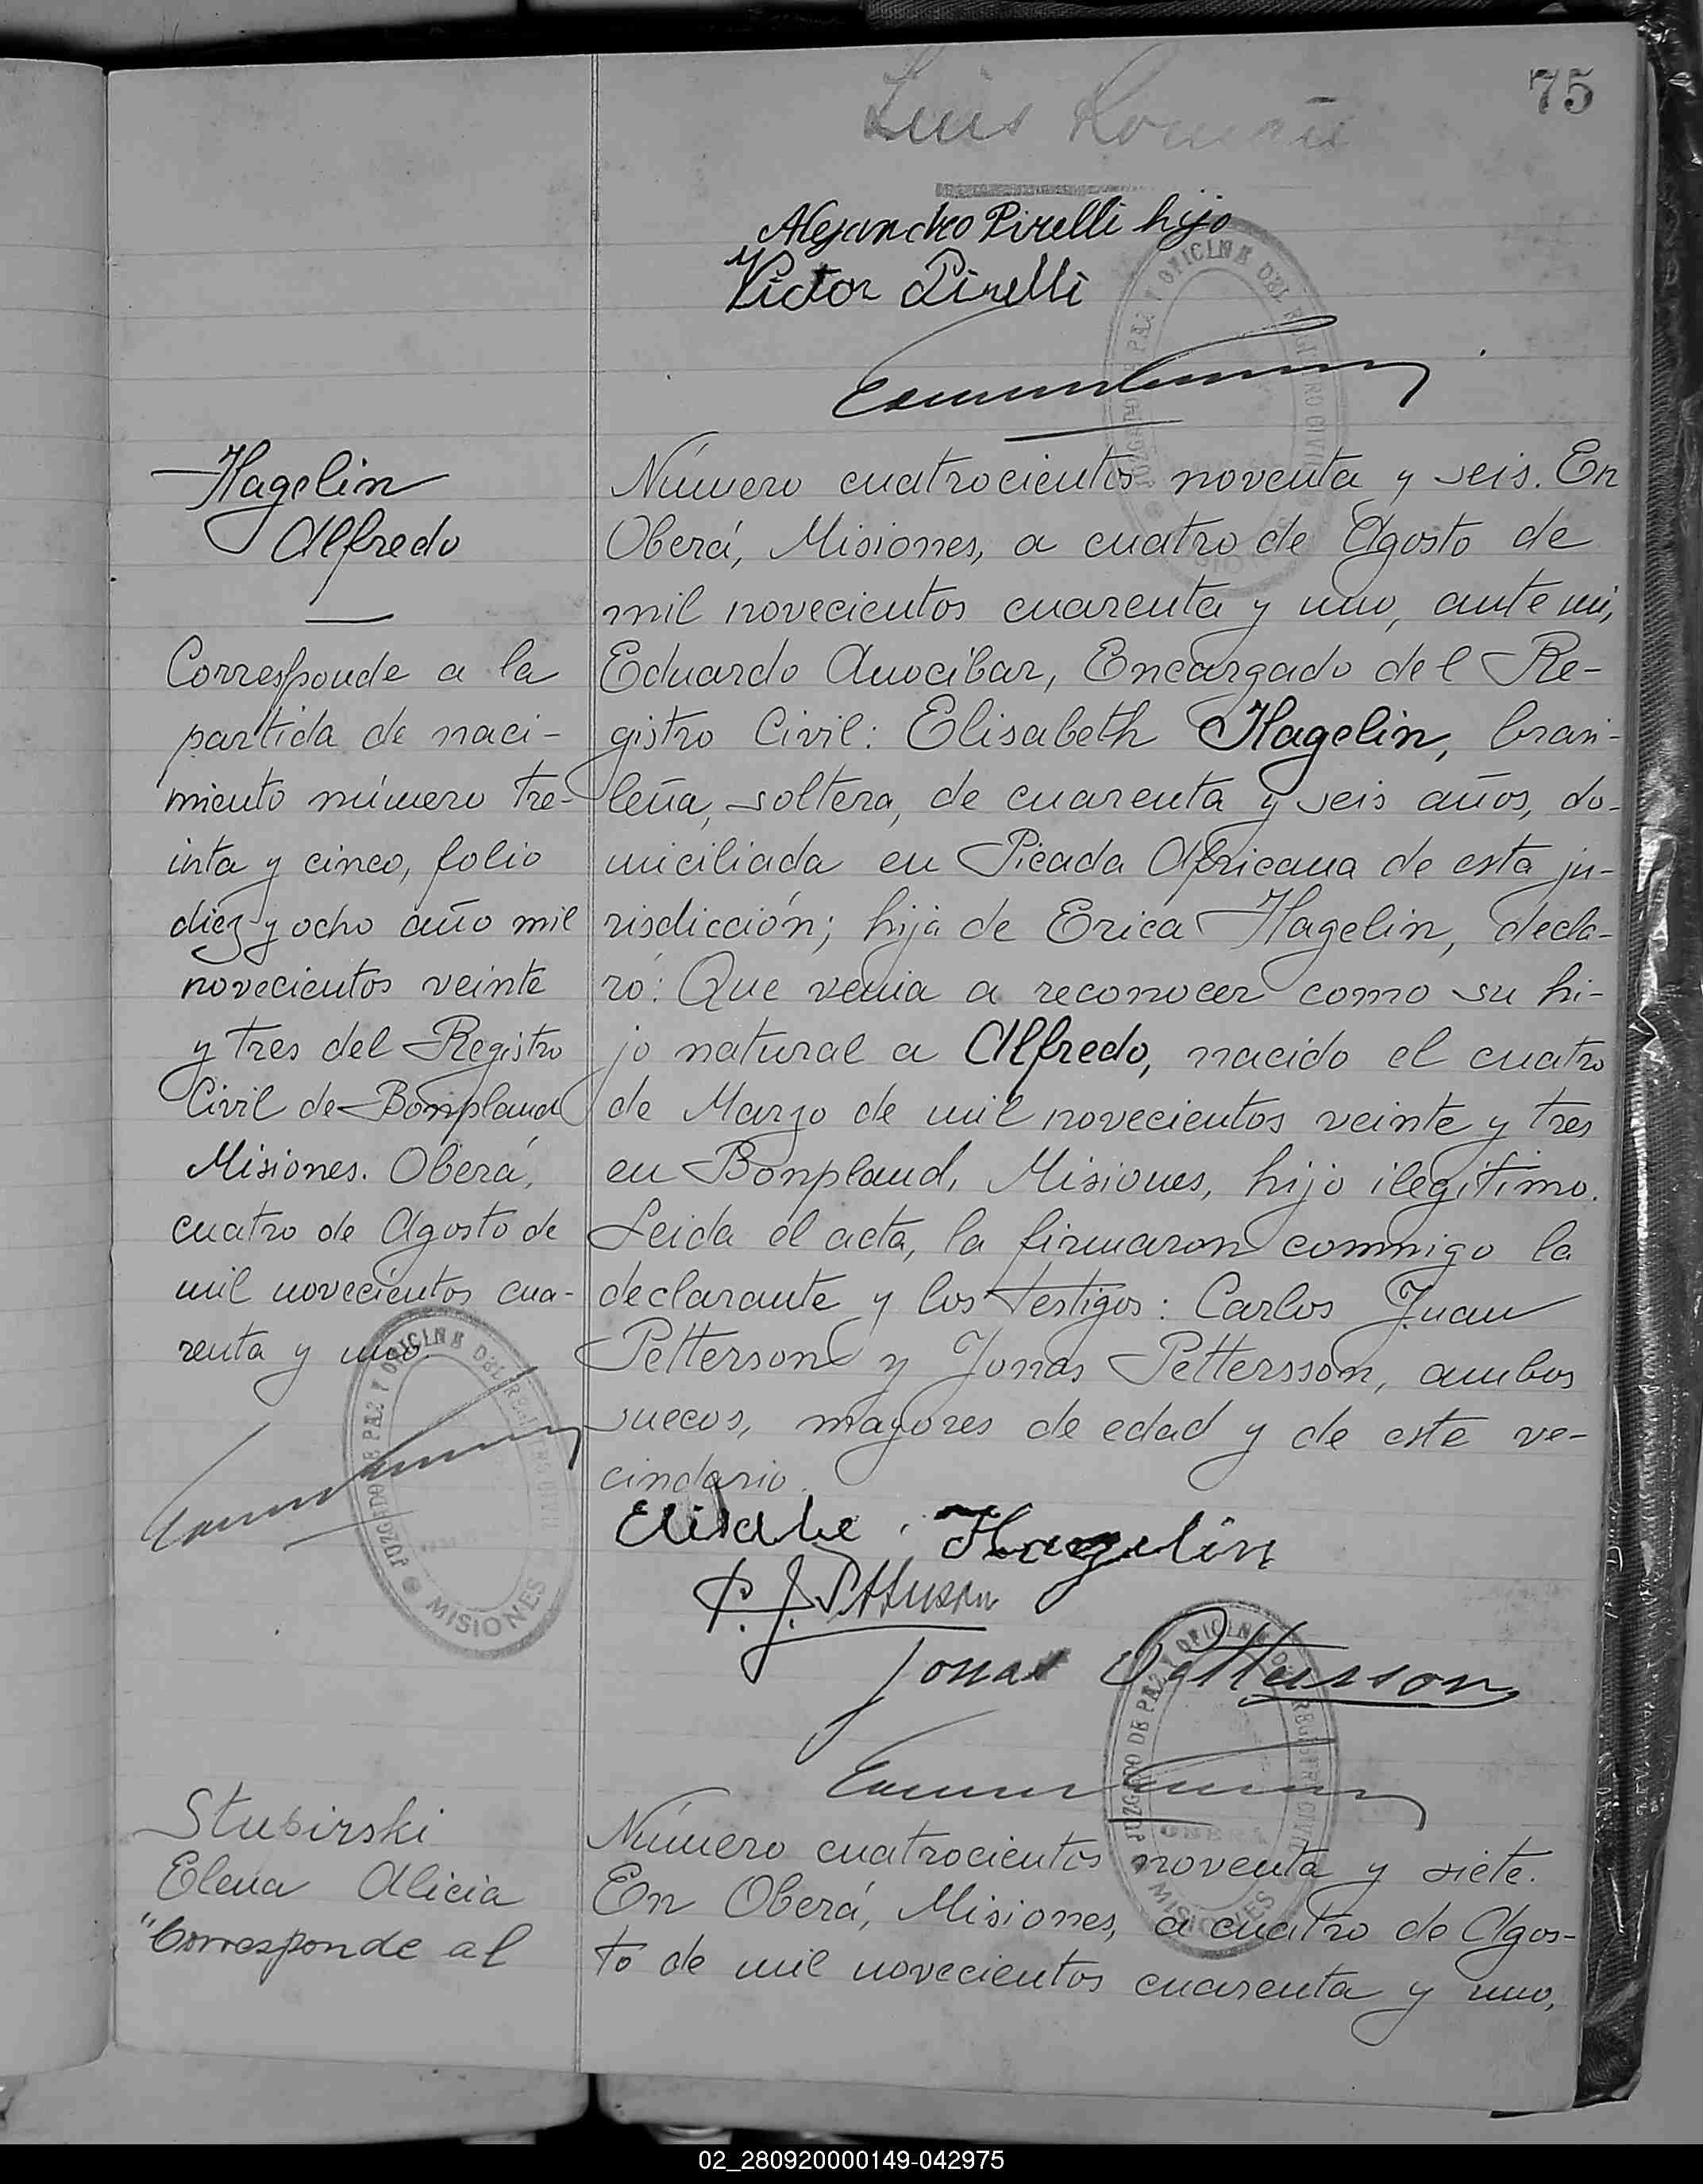 75
Luis
Alejandro Pirelli hijo
Victor Pirelli
Hagelin
Alfredo
Corresponde a la
partida de naci-
miento número tre-
inta y cinco, folio
diez y ocho año mil
novecientos veinte
y tres del Registro
Civil de Bompland
Misiones. Oberá,
cuatro de Agosto de
mil novecientos cua-
renta y uno.
Número cuatrocientos noventa y seis. En
Oberá, Misiones, a cuatro de Agosto de
mil novecientos cuarenta y uno, ante mi,
Eduardo Anocibar, Encargado del Re-
gistro Civil: Elisabeth Hagelin, brasi-
leña, soltera, de cuarenta y seis años, do-
miciliada en Picada Africana de esta ju-
risdicción; hija de Erica Hagelin, decla-
ró: Que venia a reconocer como su hi-
jo natural a Alfredo, nacido el cuatro
de Marzo de mil novecientos veinte y tres
en Bonpland, Misiones, hijo ilegítimo.
Leida el acta, la firmaron conmigo la
declarante y los testigos: Carlos Juan
Petterson y Jonas Pettersson, ambos
suecos, mayores de edad y de este ve-
cindario.
Elisabe Hagelin
C. J. Petterson
Jonas Pettersson
JUZGADO DE PAZ Y OFICINA DEL REGISTRO CIVIL
OBERA
MISIONES
Stubirski
Elena Alicia
"Corresponde al
Número cuatrocientos noventa y siete.
En Oberá, Misiones, a cuatro de Agos-
to de mil novecientos cuarenta y uno,
02_280920000149-042975